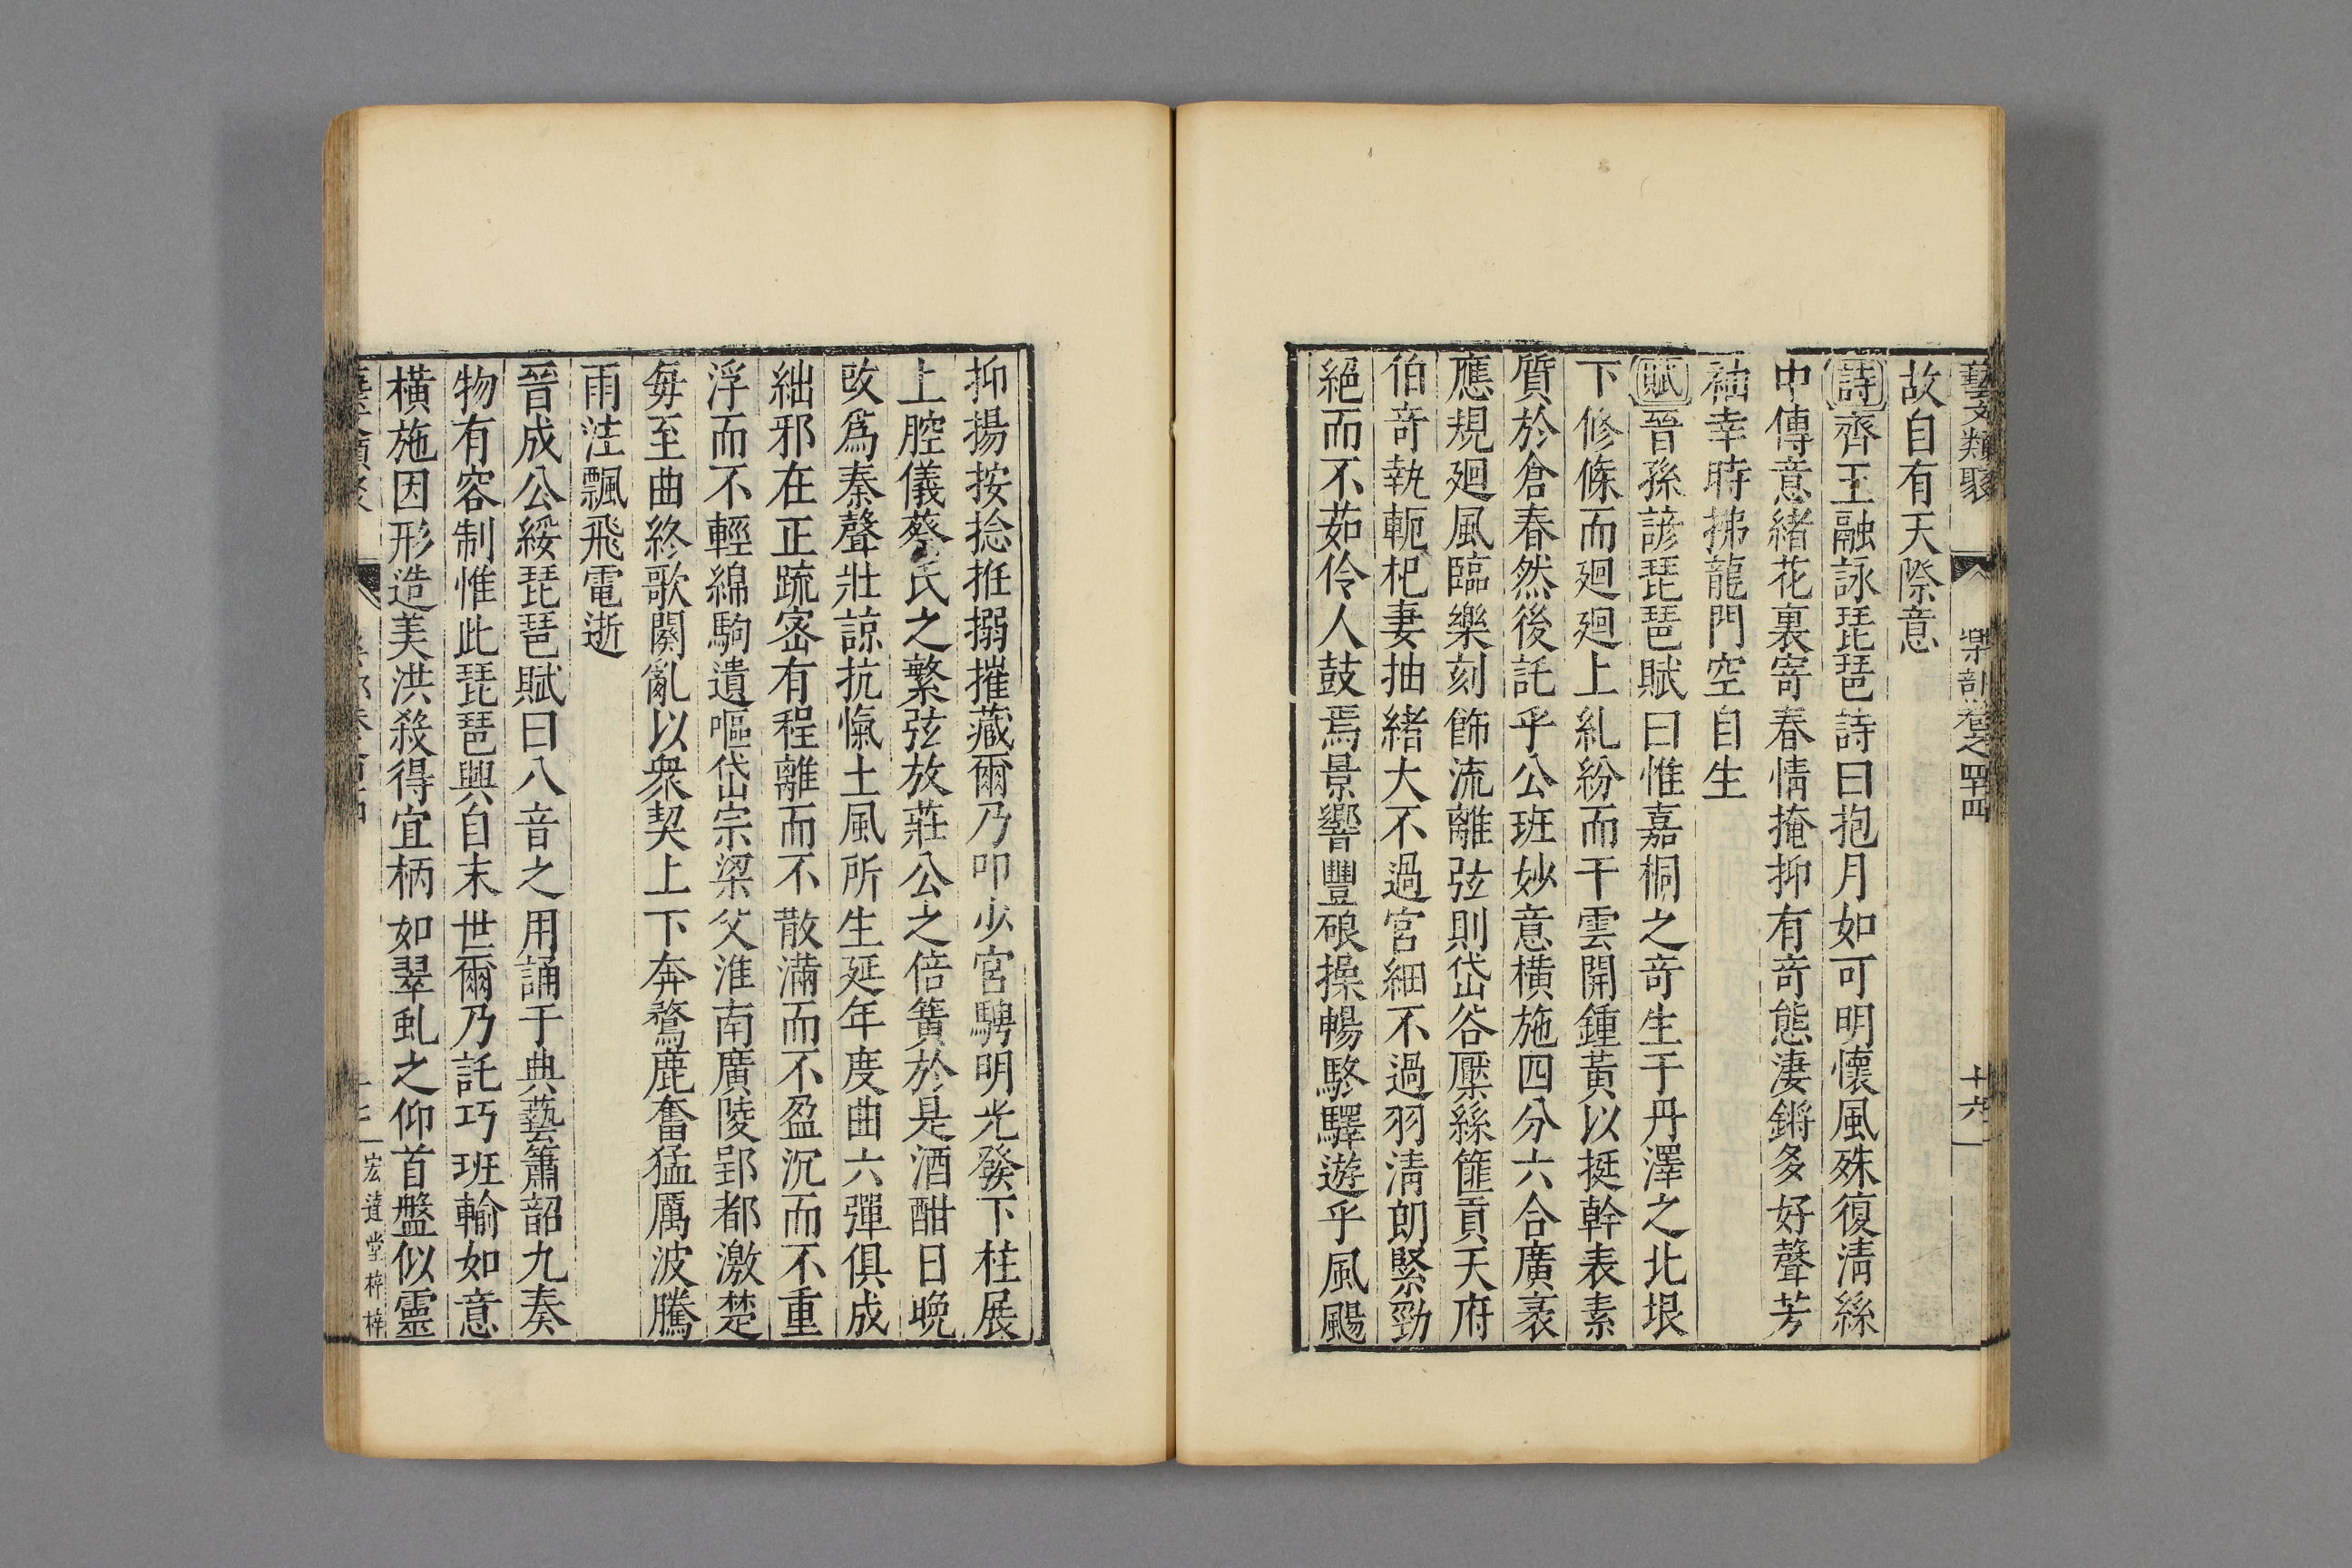 藝文類聚 樂部卷之四十四 十六
故自有天際意
詩齊王融詠琵琶詩曰抱月如可明懷風殊復清絲
中傳意緒花裏寄春情掩抑有奇態淒鏘多好聲芳
袖幸時拂龍門空自生
賦晉孫諺琵琶賦曰惟嘉桐之奇生于丹澤之北垠
下修條而迴迴上糺紛而干雲開鍾黃以挺幹表素
質於倉春然後託乎公班妙意橫施四分六合廣袤
應規迴風臨樂刻飾流離弦則岱谷檿絲篚貢天府
伯奇執軛杞妻抽緒大不過宮細不過羽清朗緊勁
絕而不茹伶人鼓焉景響豐硠操暢駱驛遊乎風颺
抑揚按捻拰搦摧藏爾乃叩少宮騁明光發下柱展
上腔儀蔡氏之繁弦放莊公之倍簧於是酒酣日晚
改爲秦聲壯諒抗愾土風所生延年度曲六彈俱成
絀邪在正疏密有程離而不散滿而不盈沉而不重
浮而不輕綿駒遺嘔岱宗梁父淮南廣陵郢都激楚
每至曲終歌闋亂以衆契上下奔騖鹿奮猛厲波騰
雨注飄飛電逝
晉成公綏琵琶賦曰八音之用誦于典藝簫韶九奏
物有容制惟此琵琶興自末世爾乃託巧班輸如意
橫施因形造美洪殺得宜柄如翠虬之仰首盤似靈
宏達堂梓梓